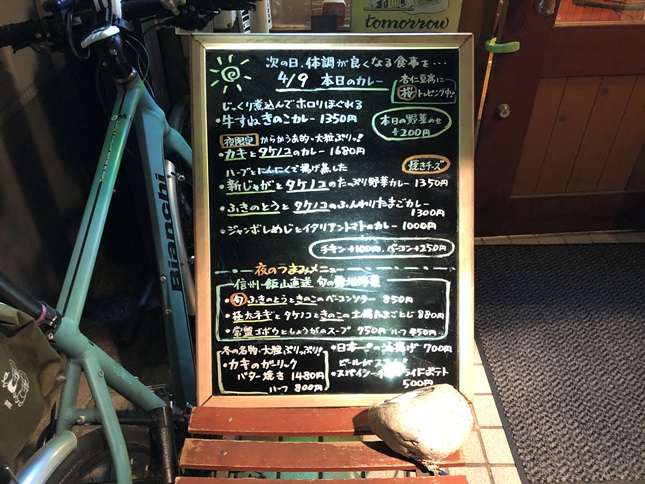 tomorrow
次の日、体調が良くなる食事を…
4/9 本日のカレー
杏仁豆腐に
桜トッピング中!
じっくり煮込んでホロリほぐれる
・牛すねきのこカレー 1350円
本日の野菜のせ
+200円
夜限定
大粒ぷりっ!!
・カキとタケノコのカレー 1680円
ハーブとにんにくで揚げ蒸した
焼きチーズ
・新じゃがとタケノコのたっぷり野菜カレー 1350円
・ふきのとうとタケノコのふんわりたまごカレー
1300円
・ジャンボしめじとイタリアントマトのカレー 1000円
チキン+100円 ベーコン+250円
夜のつまみメニュー
信州・飯山直送 旬の
・旬ふきのとうときのこのベーコンソテー 850円
・極太ネギとタケノコときのこの土鍋たまごとじ 880円
・常盤ゴボウとしょうがのスープ 750円 ハーフ 450円
冬の名物・大粒ぷりっぷり!
・カキのガーリック
バター焼き 1480円
ハーフ 800円
・日本一の油揚げ 700円
ビールが
・スパイシー
ポテト
500円
Bianchi